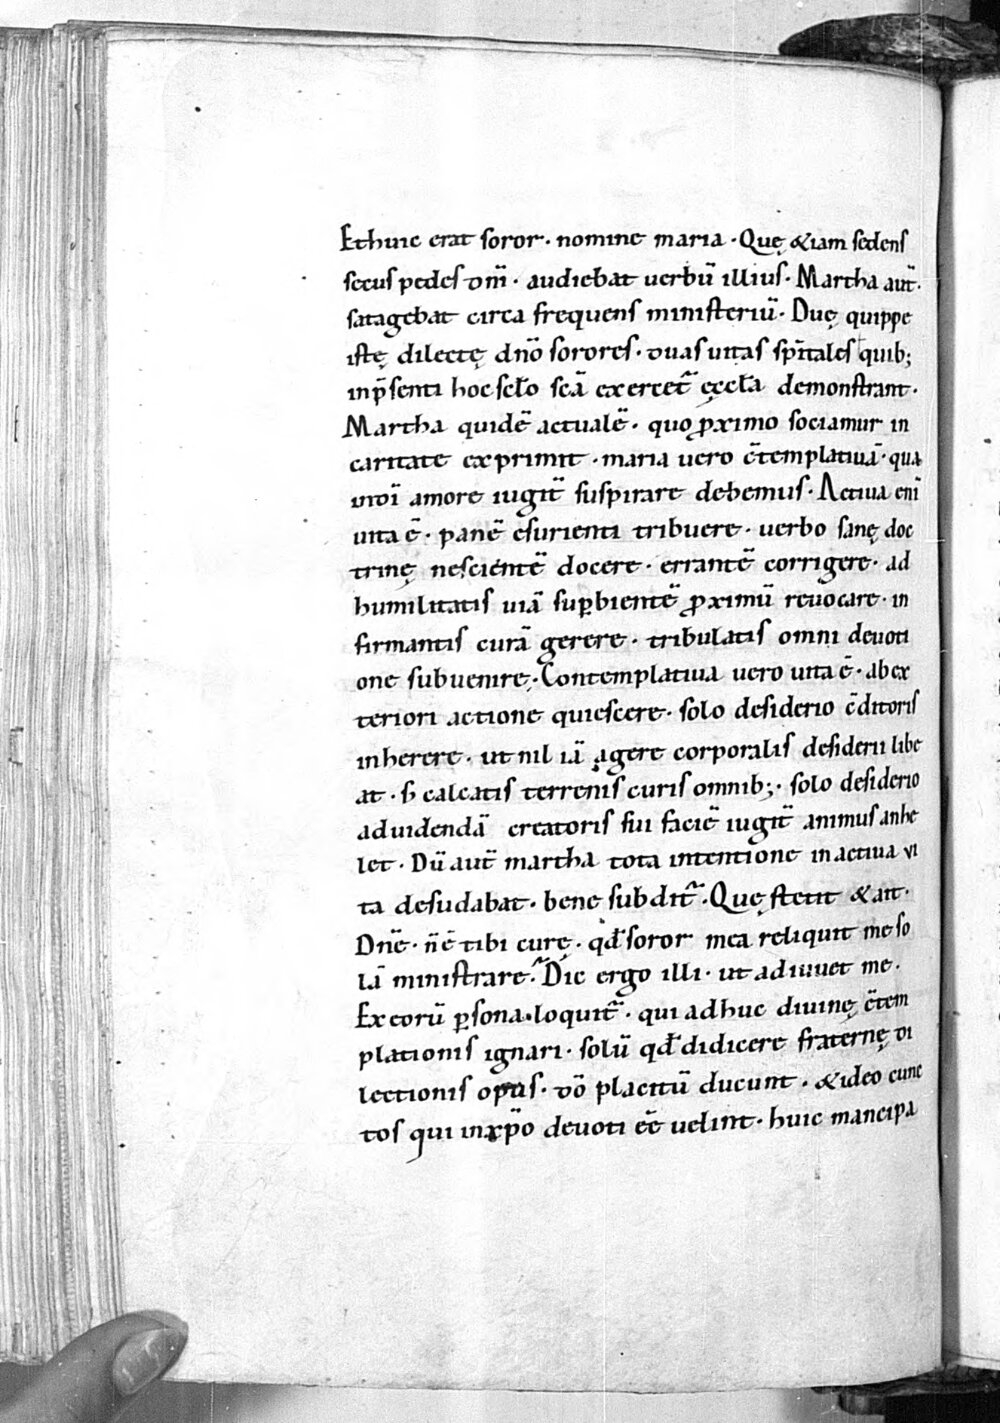 Et huic erat soror· nomine maria· Quę &iam sedens
secus pedes dn̄i· audiebat uerbū illius· Martha aut̄·
satagebat circa frequens ministeriū· Duę quippe
istę dilectę dn̄o sorores· duas uitas sp̄itales quib;
in p̄senti hoc sc̄lo sc̄a exercet̄ ęccl̄a demonstrant·
Martha quidē actualē· quo ꝓximo sociamur in
caritate exprimit· maria uero c̄templatiuā· qua
in dī amore iugit̄ suspirare debemus· Actiua enī
uita ē· panē esurienti tribuere· uerbo sanę doc
trinę nescientē docere· errantē corrigere· ad
humilitatis uiā sup̱bientē ꝓximū reuocare· in
firmantis curā gerere· tribulatis omni deuoti
one subuenire· Contemplatiua uero uita ē· ab ex
teriori actione quiescere· solo desiderio c̄ditoris
inherere· ut nil iā agere corporalis desiderii libe
at· s̄ calcatis terrenis curis omnib;· solo desiderio
ad uidendā creatoris sui faciē iugit̄ animus anhe
let· Dū aut̄ martha tota intentione in actiua vi
ta desudabat· bene subdit̄· Quę stetit & ait·
Dn̄e· n̄ ē tibi curę· qđ soror mea reliquit me so
lā ministrare? Dic ergo illi· ut adiuuet me·
Ex eorū ꝑsona loquit̄· qui adhuc diuinę c̄tem
plationis ignari· solū qđ didicere fraternę di
lectionis opus· dō placitū ducunt· & ideo cunc
tos qui in xp̄o deuoti eē uelint· huic mancipa